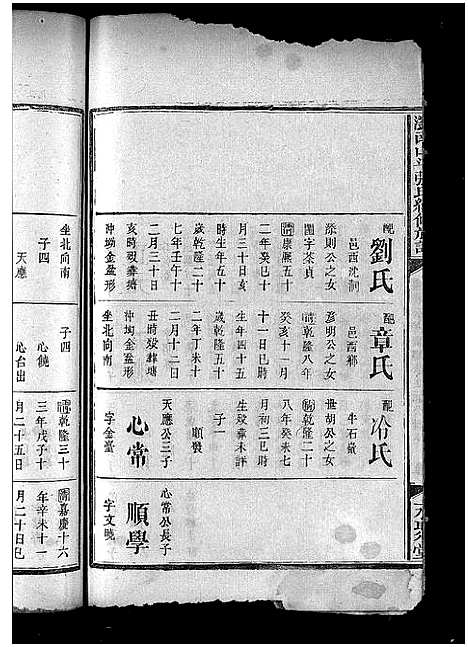 配劉氏
邑西沈
深則公之女
閨字茶貞
清康熙五十
二年癸巳十
月三十日亥
時生年五十
歲乾隆二十
七年壬午十
二月三十日
亥時歿彝塘
沖坳金盆形
坐北向南
子四
天應
配章氏
邑西鄉
彥明公之女
清乾隆八年
癸亥十一月
十一日巳時
生年四十五
歲乾隆五十
二年丁未十
二月十二日
丑時歿葬塘
沖坳金盆形
坐北向南
子四
心饒
心台出
配冷氏
牛石嶺
世胡公之女
清乾隆二十
八年癸未七
月初三巳時
生歿葬未詳
子一
順襲
心常
天應公三子
字金堂
清乾隆三十
三年戊子十
月二十五日
順學
心常公長子
字文曉
清嘉慶十六
年辛未十一
月二十日巳